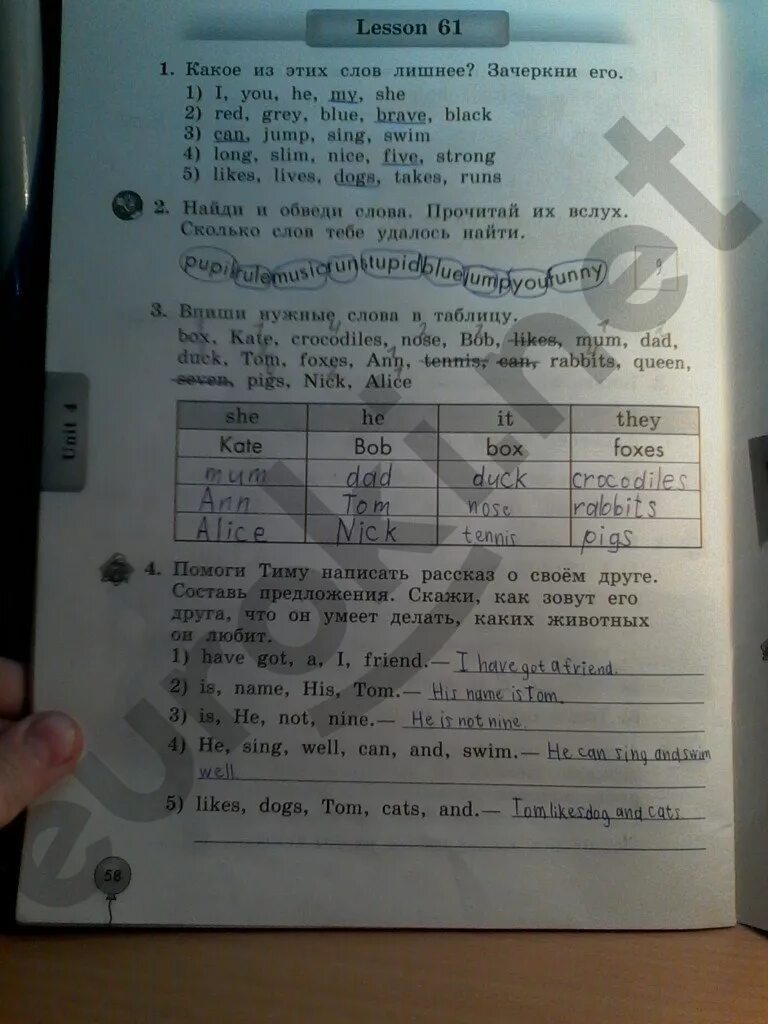 Lesson 61
1. Какое из этих слов лишнее? Зачеркни его.
1) I, you, he, my, she
2) red, grey, blue, brave, black
3) can, jump, sing, swim
4) long, slim, nice, five, strong
5) likes, lives, dogs, takes, runs
2. Найди и обведи слова. Прочитай их вслух.
Сколько слов тебе удалось найти.
pupilrulemusicrunstupidbluejumpyoufunny 9
3. Впиши нужные слова в таблицу.
box, Kate, crocodiles, nose, Bob, likes, mum, dad,
duck, Tom, foxes, Ann, tennis, can, rabbits, queen,
seven, pigs, Nick, Alice
she he it they
Kate Bob box foxes
mum dad duck crocodiles
Ann Tom nose rabbits
Alice Nick tennis pigs
Unit 4
4. Помоги Тиму написать рассказ о своём друге.
Составь предложения. Скажи, как зовут его
друга, что он умеет делать, каких животных
он любит.
1) have got, a, I, friend.— I have got a friend.
2) is, name, His, Tom.— His name is Tom.
3) is, He, not, nine.— He is not nine.
4) He, sing, well, can, and, swim.— He can sing and swim
well
5) likes, dogs, Tom, cats, and.— Tom likes dog and cats
58
euroki.net